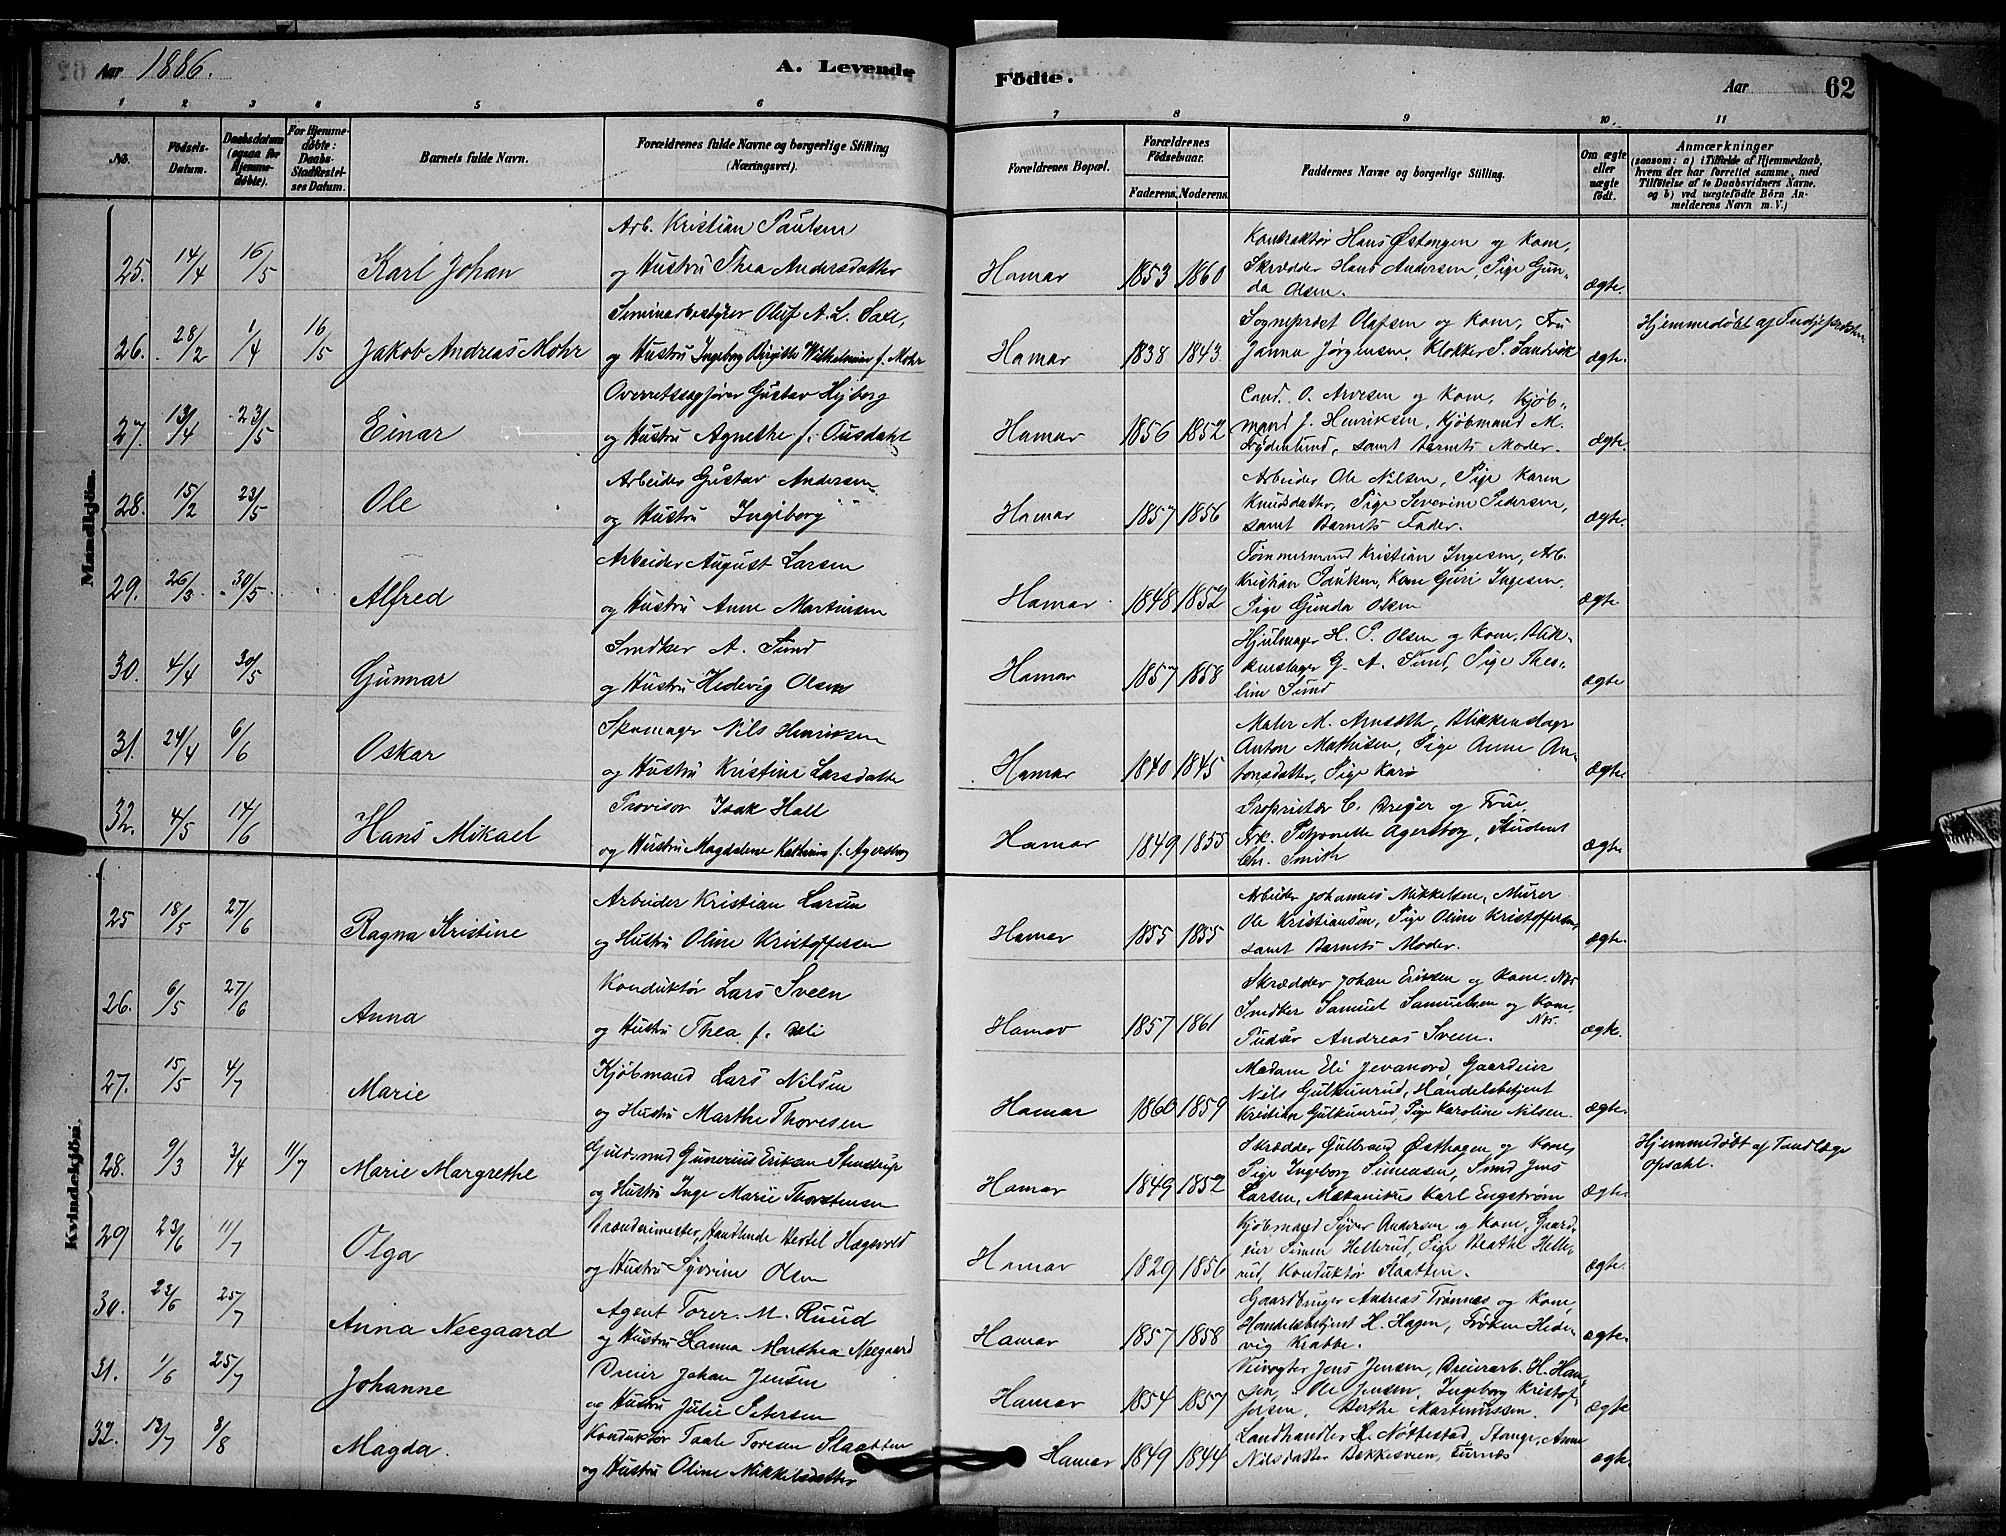 Aar 1886.
A. Levende
Födte.
Aar
62
1 2 3 4 5 6 7 8 9 10 11
No.
Födsels-Datum.
Daabsdatum (ogsaa for Hjemmedöbte).
For Hjemmedøbte: Daabs-Stadfæstelses Datum.
Barnets fulde Navn.
Forældrenes fulde Navne og borgerlige Stilling (Næringsvei).
Forældrenes Bopæl.
Forældrenes Födselsaar.
Faderens. Moderens.
Faddernes Navne og borgerlige Stilling.
Om ægte eller uægte födt.
Anmærkninger
(saasom: a) i Tilfælde af Hjemmedaab, hvem der har forrettet samme, med Tilföielse af to Daabsvidners Navne, og b) ved uægtefödte Börn Anmelderens Navn m. V.)
Mandkjön.
25. 14/4 16/5 Karl Johan
Arb. Kristian Paulsen
og Hustru Thea Andersdatter
Hamar 1853 1860
Kontraktør Hans Østengen og Kone,
Skrædder Hans Andersen, Pige Gun-
da Olsen.
ægte.
26. 28/2 1/4 16/5 Jakob Andreas Mohr
Seminarbestyrer Oluf A. L. Sall,
og Hustru Ingeborg Birgitte Wilhelmine f. Mohr
Hamar 1838 1843
Sogneprest Olafsen og Kone, Fru
Janna Jørgensen, Klokker P. Sandvik
ægte.
Hjemmedøbt af
27. 13/4 23/5 Einar
Overretssagfører Gustav Hyberg
og Hustru Agnethe f. Ousdahl
Hamar 1856 1852
Cand. O. Arvesen og Kone, Kjøb-
mand J. Henriksen, Kjøbmand M.
Frydenlund, samt Barnets Moder.
ægte.
28. 15/2 23/5 Ole
Arbeider Gustav Andersen
og Hustru Ingeborg
Hamar 1857 1856
Arbeider Ole Nilsen, Pige Karen
Knudsdatter, Pige Severine Pedersen,
samt Barnets Fader.
ægte.
29. 26/3 30/5 Alfred
Arbeider August Larsen
og Hustru Anne Martinsen
Hamar 1848 1852
Tømmermand Kristian Ingesen, Arb.
Kristian Paulsen, Kone Guri Ingesen,
Pige Gunda Olsen
ægte
30. 4/4 30/5 Gunnar
Snedker A. Sund
og Hustru Hedevig Olsen
Hamar 1857 1858
Hjulmager H. P. Olsen og Kone, Blik-
kenslager G. A. Sund, Pige Theo-
line Sund
ægte
31. 24/4 6/6 Oskar
Skomager Nils Henriksen
og Hustru Kristine Larsdatter
Hamar 1840 1845
Maler M. Arnseth, Blikkenslager
Anton Mathisen, Pige Anne An-
tonsdatter, Pige Kari
ægte.
32. 4/5 14/6 Hans Mikael
Provisor Isak Hall
og Hustru Magdalene Kathrine f. Agersborg
Hamar 1849 1855
Proprietær C. Dreyer og Frue,
Frk. Petronelle Agersborg, Student
Chr. Smith
ægte
Kvindekjön.
25 18/5 27/6 Ragna Kristine
Arbeider Kristian Larsen
og Hustru Oline Kristoffersen
Hamar 1855 1855
Arbeider Johannes Mikkelsen, Murer
Ole Kristiansen, Pige Oline Kristoffersen,
samt Barnets Moder.
ægte.
26. 6/5 27/6 Anna
Konduktør Lars Sveen
og Hustru Thea f. Deli
Hamar 1857 1861
Skrædder Johan Eriksen og Kone, Næs
Snedker Samuel Samuelsen og Kone
Næs.
Pudser Andreas Sveen.
ægte.
27. 15/5 4/7 Marie
Kjøbmand Lars Nilsen
og Hustru Marthe Thoresen
Hamar 1860 1859
Madam Eli Jevanord, Gaardeier
Nils Gulkunrud, Handelsbetjent
Kristian Gulkunrud, Pige Karoline Nilsen.
ægte.
28. 9/3 3/4 11/7 Marie Margrethe
Guldsmed Gunerius Eriksen Stenstrup
og Hustru Inge Marie Thorstensen
Hamar 1849 1852
Skrædder Gulbrand Østhagen og Kone,
Pige Ingeborg Simensen, Smed Jens
Larsen, Mekanikus Karl Engstrøm
ægte.
Hjemmedøbt af Tandlæge
Opsahl.
29 23/6 11/7 Olga
Brændevinsmester, Handlende Bertel Hagevold
og Hustru Syverine Olsen
Hamar 1829 1856
Kjøbmand Syver Andersen og Kone, Gaard-
eier Simen Hellerud, Pige Beathe Helle-
rud, Konduktør Slaatten.
ægte.
30. 23/6 25/7 Anna Neegaard
Agent Torer M. Ruud
og Hustru Hanna Marthea Neegaard
Hamar 1857 1858
Gaardbruger Andreas Trønnæs og Kone,
Handelsbetjent H. Hagen, Frøken Hede-
vig Krabbe.
ægte.
31. 1/6 25/7 Johanne
Dreier Johan Jensen
og Hustru Julie Petersen
Hamar 1854 1857
Veivogter Jens Jensen, Dreierarb. H. Han-
sen, Ole Jensen, Ingeborg Kristof-
fersen, Berthe Martinussen.
ægte
32. 13/7 8/8 Magda.
Konduktør Taale Toresen Slaatten
og Hustru Oline Mikkelsdatter
Hamar 1849 1844
Landhandler L. Nøttestad, Stange, Anne
Nilsdatter Bekkesveen, Furnæs
ægte.